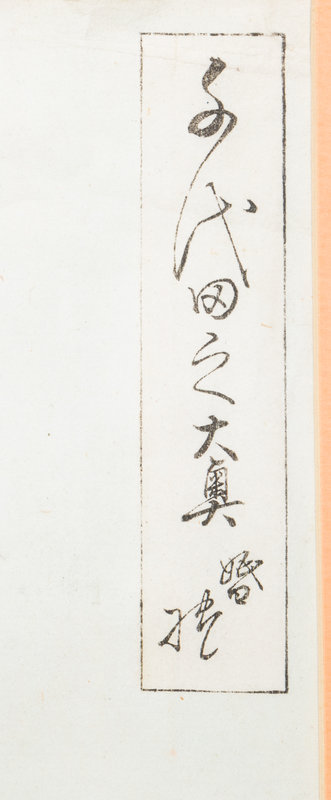 千代田之大奥 婚礼